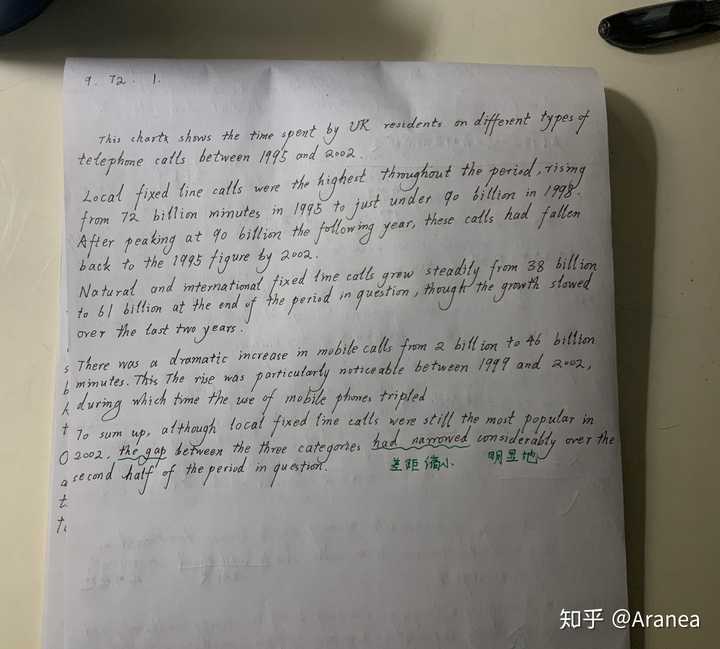 9. T2. 1.
This charts shows the time spent by UK residents on different types of
telephone calls between 1995 and 2002.
Local fixed line calls were the highest throughout the period, rising
from 72 billion minutes in 1995 to just under 90 billion in 1998.
After peaking at 90 billion the following year, these calls had fallen
back to the 1995 figure by 2002.
Natural and international fixed line calls grew steadily from 38 billion
to 61 billion at the end of the period in question, though the growth slowed
over the last two years.
There was a dramatic increase in mobile calls from 2 billion to 46 billion
minutes. This The rise was particularly noticeable between 1999 and 2002,
during which time the use of mobile phones tripled
To sum up, although local fixed line calls were still the most popular in
2002, the gap between the three categories had narrowed considerably over the
second half of the period in question.
差距缩小 明显地
知乎 @Aranea